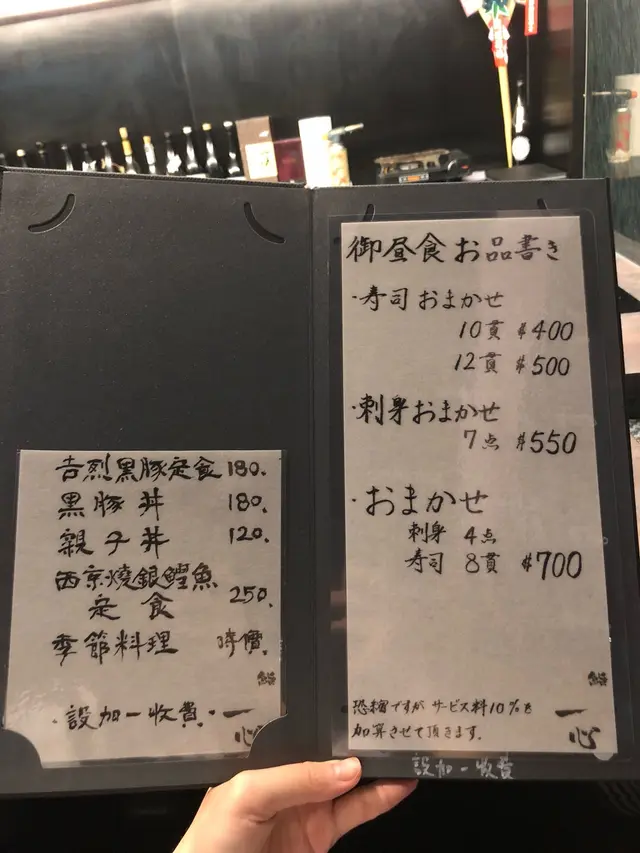 吉烈黒豚定食 180.
黒豚丼 180.
親子丼 120.
西京燒銀鱈魚
定食 250.
季節料理 時價.
·設加一收費·
一心
御昼食お品書き
·寿司おまかせ
10貫 $400
12貫 $500
·刺身おまかせ
7点 $550
·おまかせ
刺身 4点
寿司 8貫 $700
恐縮ですがサービス料10%を
加算させて頂きます.
一心
設加一收費